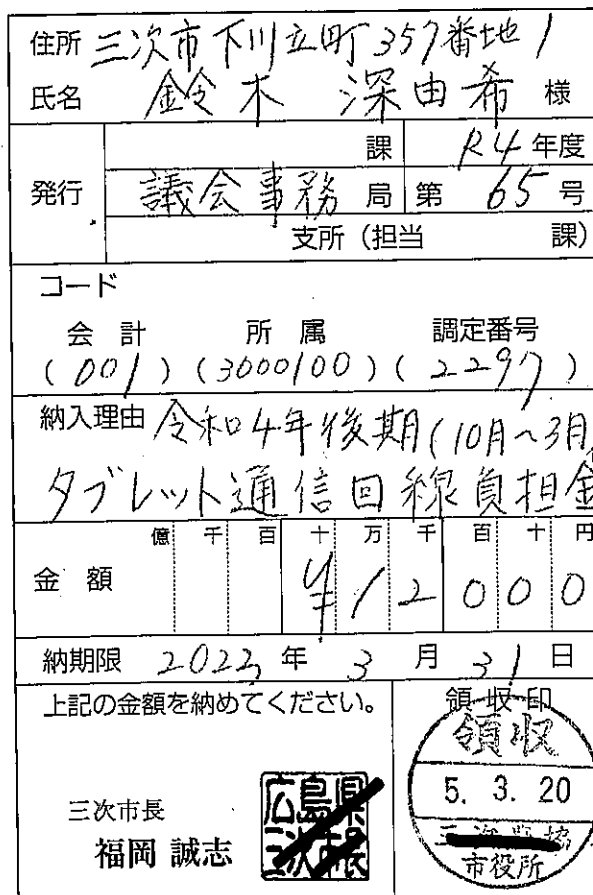 住所 三次市下川立町357番地1
氏名 鈴木 深由希 様
課 R4年度
発行 議会事務局 第65号
支所(担当 課)
コード
会計 所属 調定番号
(001)(3000100)(2297)
納入理由 令和4年後期(10月~3月)
タブレット通信回線負担金
億 千 百 十 万 千 百 十 円
金額 ¥12000
納期限 2023年3月31日
上記の金額を納めてください。
領収印
領収
5. 3. 20
市役所
三次市長
福岡 誠志
広島県
三次市長